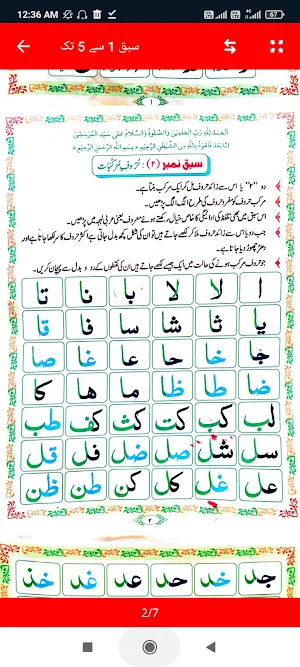 12:36 AM
67
سبق 1 سے 5 تک
١
اَلْحَمْدُ لِلّٰهِ رَبِّ الْعٰلَمِيْنَ وَالصَّلٰوةُ وَالسَّلَامُ عَلٰى سَيِّدِ الْمُرْسَلِيْنَ
اَمَّا بَعْدُ فَاَعُوْذُ بِاللّٰهِ مِنَ الشَّيْطٰنِ الرَّجِيْمِ بِسْمِ اللّٰهِ الرَّحْمٰنِ الرَّحِيْمِ
سبق نمبر (۲) : حُروفِ مُرکَّبات
دو "۲" یا اس سے زائد حروف مل کر ایک مرکب بنتا ہے۔
مرکب حروف کو مفرد حروف کی طرح الگ الگ پڑھیں۔
اس سبق میں بھی تلفظ کی ادائیگی کا خاص خیال رکھتے ہوئے معروف یعنی عربی لہجہ میں پڑھیں۔
جب دو یا اس سے زائد حروف ملا کر لکھے جاتے ہیں تو ان کی شکل کچھ بدل جاتی ہے اکثر حروف کا سر لکھا جاتا ہے اور
دھڑ چھوڑ دیا جاتا ہے۔
جو حروف مرکب ہونے کی حالت میں ایک جیسے لکھے جاتے ہیں ان کی نقطوں کے رد و بدل سے پہچان کریں۔
ا لا لا با نا تا
يا ثا شا سا فا قا
جا خا حا عا غا صا
ضا طا ظا ما ها كا
لب كب كت كث كف طب
سل شل صل ضل فل قل
عل غل كل كن طن ظن
٢
جد خد حد عد غد خذ
2/7